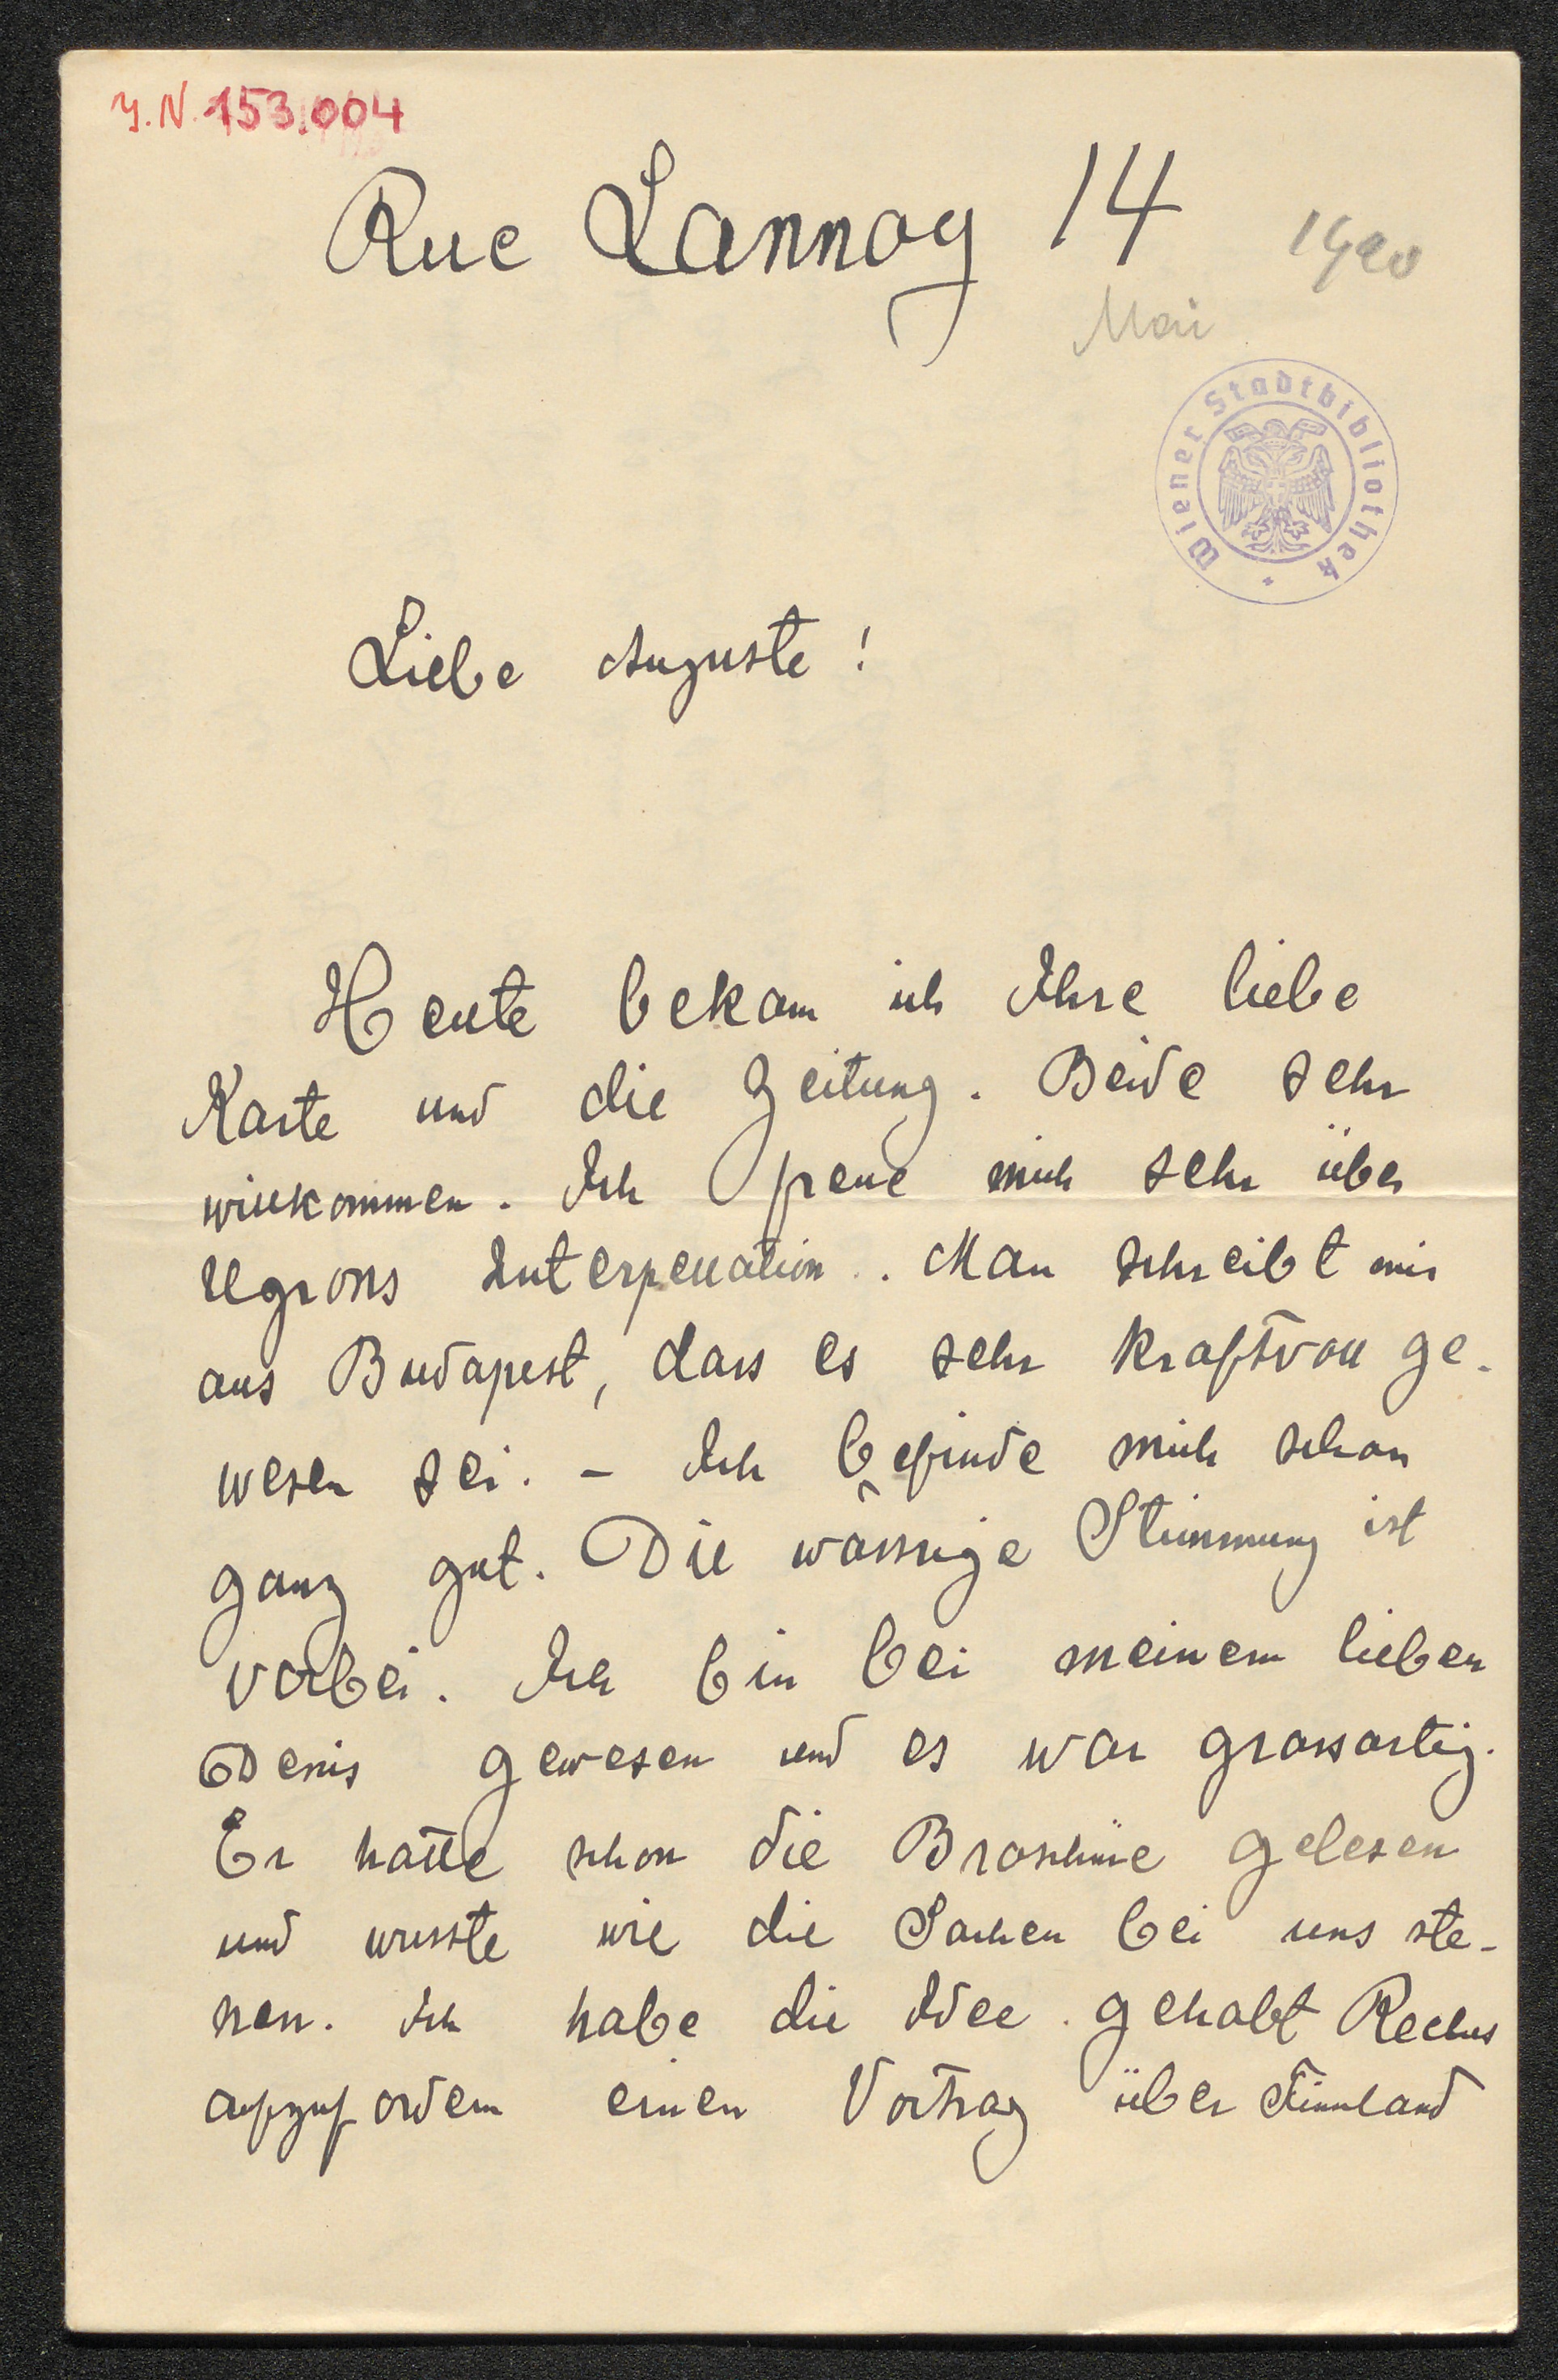 J.N. 153.004
Rue Lannoy 14
1900
Mai
Wiener Stadtbibliothek
Liebe Auguste!
Heute bekam ich Ihre liebe
Karte und die Zeitung. Beide sehr
willkommen. Ich freue mich sehr über
Ugrons Interpellation. Man schreibt mir
aus Budapest, dass es sehr kraftvoll ge-
wesen sei. – Ich befinde mich schon
ganz gut. Die wässrige Stimmung ist
vorbei. Ich bin bei meinem lieben
Denis gewesen und es war grossartig.
Er hatte schon die Broschüre gelesen
und wusste wie die Sachen bei uns ste-
hen. Ich habe die Idee gehabt Reclus
aufzufordern einen Vortrag über Finnland